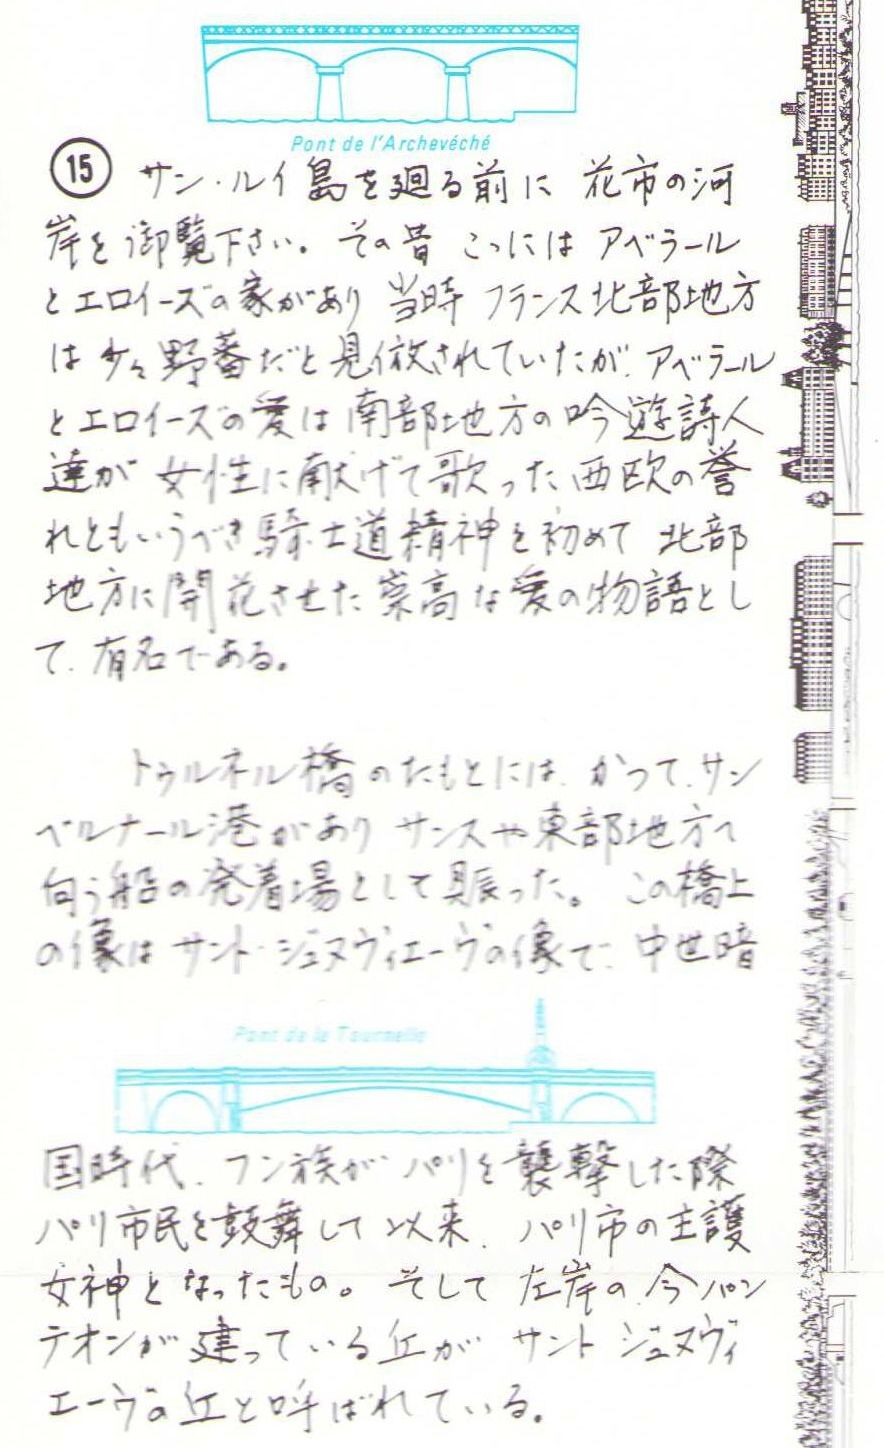 Pont de l'Archevéché
15 サン・ルイ島を廻る前に 花市の河
岸を御覧下さい。その昔 こゝには アベラール
とエロイーズの家があり 当時 フランス北部地方
は少々野蕃だと見倣されていたが、アベラール
とエロイーズの愛は南部地方の吟遊詩人
達が 女性に献げて歌った西欧の誉
れともいうべき騎士道精神を初めて 北部
地方に開花させた崇高な愛の物語とし
て、有名である。
トゥルネル橋のたもとには、かつて、サン
ベルナール港があり サンスや東部地方へ
向う船の発着場として賑った。この橋上
の像は サント・ジュヌヴィエーヴの像で、中世暗
Pont de la Tournelle
国時代、フン族が パリを襲撃した際
パリ市民を鼓舞して以来、パリ市の主護
女神となったもの。そして 左岸の、今パン
テオンが建っている丘が サント ジュヌヴィ
エーヴの丘と呼ばれている。